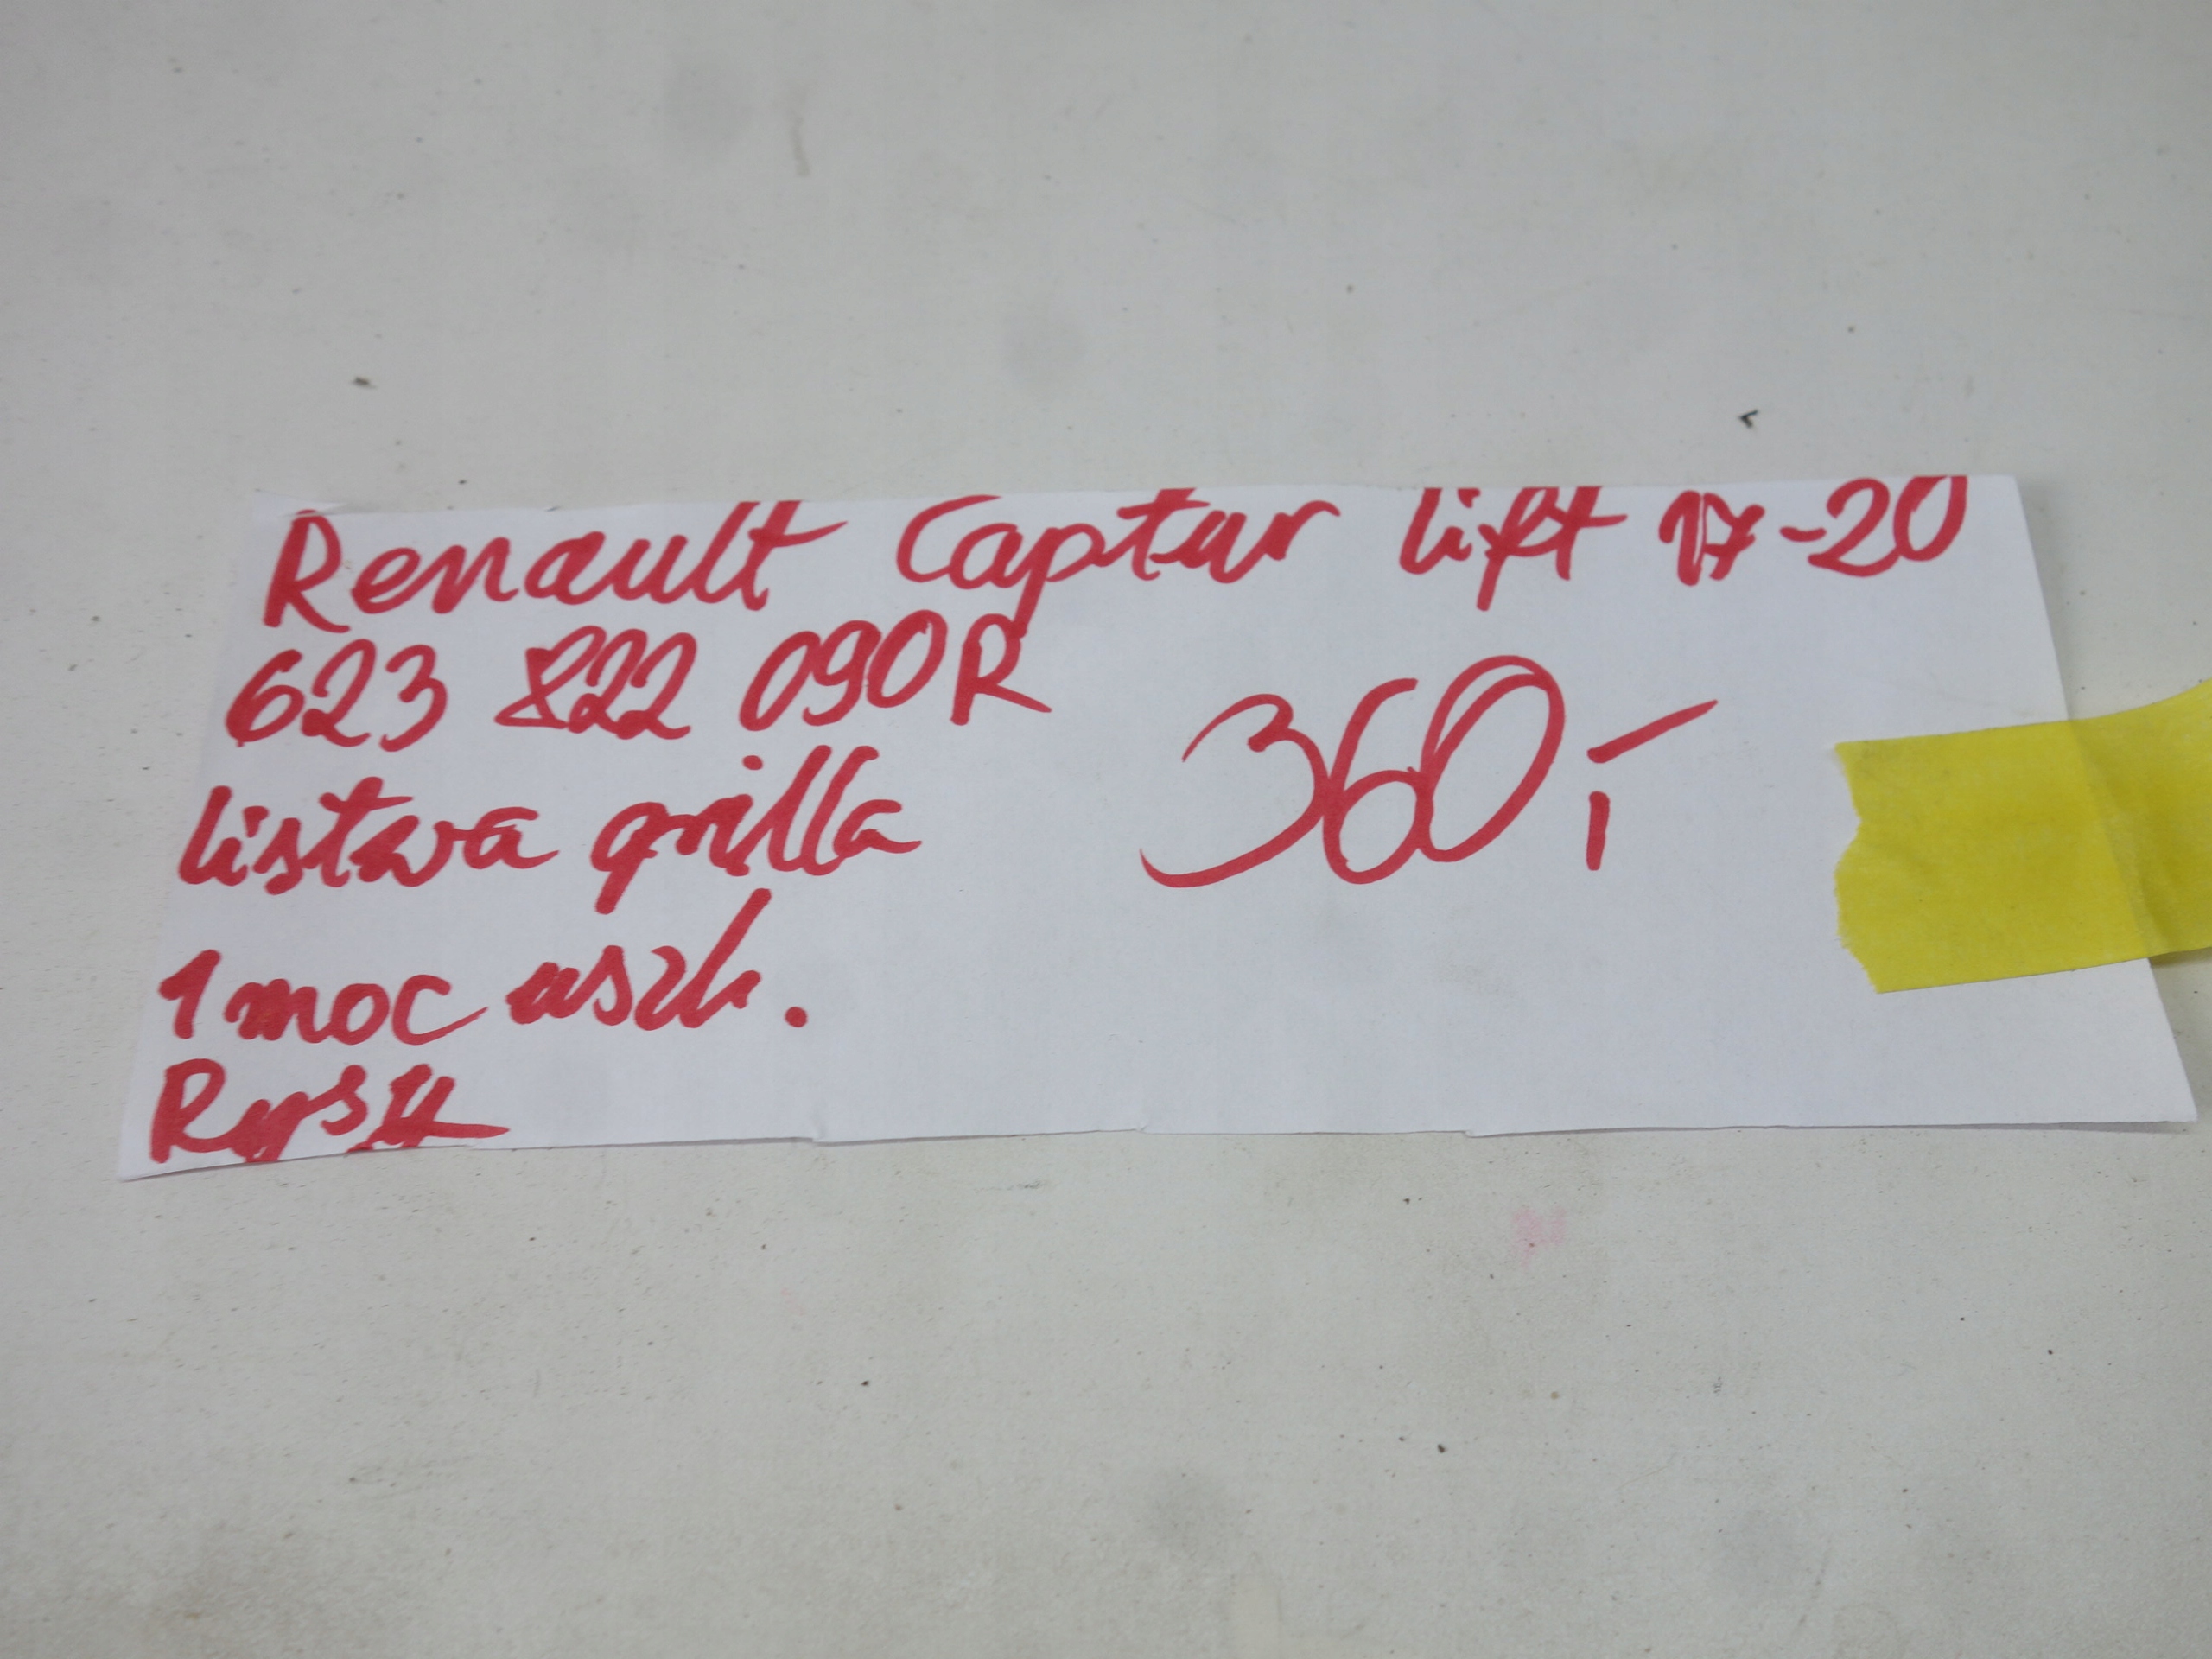 Renault Captur lift 17-20
623 822 090R
listwa grilla 360,-
1 moc uszk.
Ryski